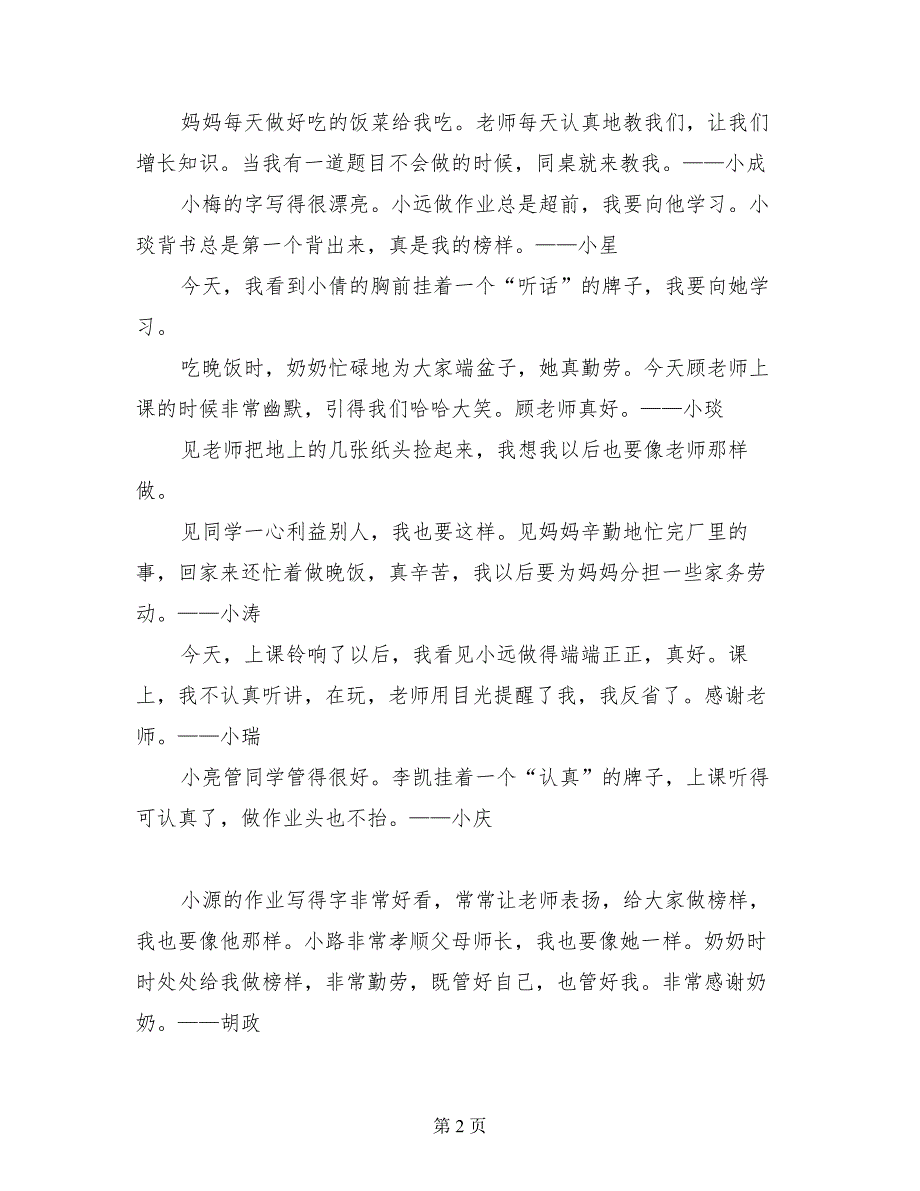 妈妈每天做好吃的饭菜给我吃。老师每天认真地教我们，让我们
增长知识。当我有一道题目不会做的时候，同桌就来教我。——小成
小梅的字写得很漂亮。小远做作业总是超前，我要向他学习。小
琰背书总是第一个背出来，真是我的榜样。——小星
今天，我看到小倩的胸前挂着一个“听话”的牌子，我要向她学
习。
吃晚饭时，奶奶忙碌地为大家端盆子，她真勤劳。今天顾老师上
课的时候非常幽默，引得我们哈哈大笑。顾老师真好。——小琰
见老师把地上的几张纸头捡起来，我想我以后也要像老师那样
做。
见同学一心利益别人，我也要这样。见妈妈辛勤地忙完厂里的
事，回家来还忙着做晚饭，真辛苦，我以后要为妈妈分担一些家务劳
动。——小涛
今天，上课铃响了以后，我看见小远做得端端正正，真好。课
上，我不认真听讲，在玩，老师用目光提醒了我，我反省了。感谢老
师。——小瑞
小亮管同学管得很好。李凯挂着一个“认真”的牌子，上课听得
可认真了，做作业头也不抬。——小庆
小源的作业写得字非常好看，常常让老师表扬，给大家做榜样，
我也要像他那样。小路非常孝顺父母师长，我也要像她一样。奶奶时
时处处给我做榜样，非常勤劳，既管好自己，也管好我。非常感谢奶
奶。——胡政
第 2 页